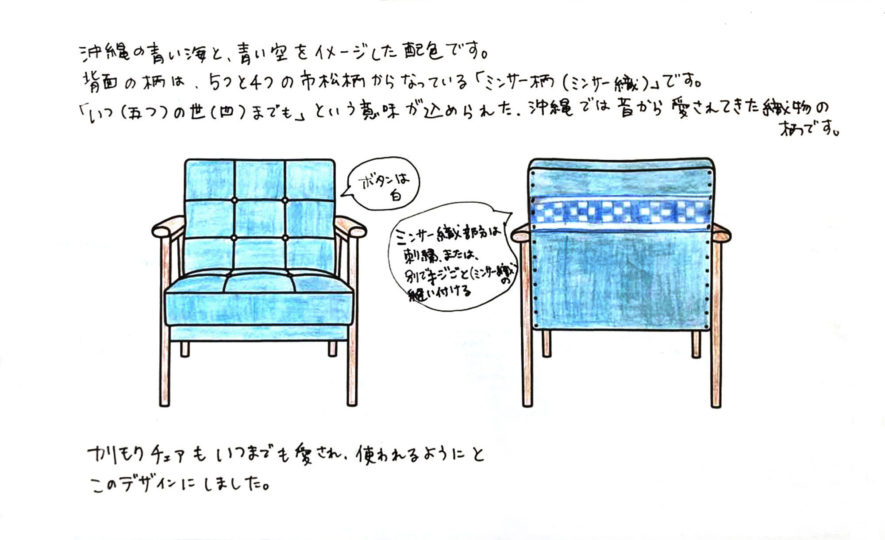 沖縄の青い海と、青い空をイメージした配色です。
背面の柄は、5つと4つの市松柄からなっている「ミンサー柄(ミンサー織)」です。
「いつ(五つ)の世(四)までも」という意味が込められた、沖縄では昔から愛されてきた織物の
柄です。
ボタンは
白
ミンサー織部分は
刺繍、または、
別で生地ごと(ミンサー織の
縫い付ける
カリモクチェアもいつまでも愛され、使われるようにと
このデザインにしました。